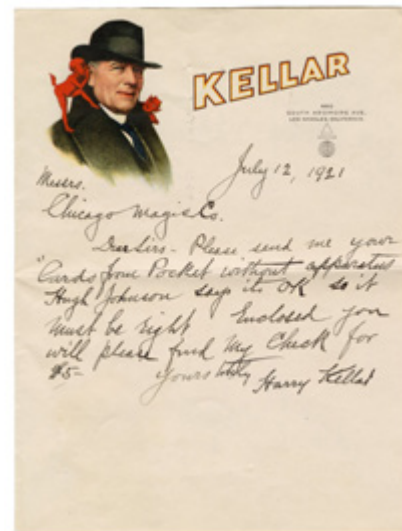 KELLAR
SOUTH ARDMORE AVE.
LOS ANGELES, CALIFORNIA.
July 12, 1921
Messrs.
Chicago Magic Co.
Dear Sirs - Please send me your
"Cards from Pocket without apparatus
Hugh Johnson says its OK so it
must be right Enclosed you
will please find my check for
$5-
Yours truly Harry Kellar